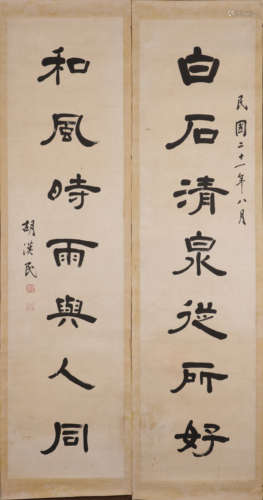 民國二十一年八月
白石清泉從所好
和風時雨與人同
胡漢民